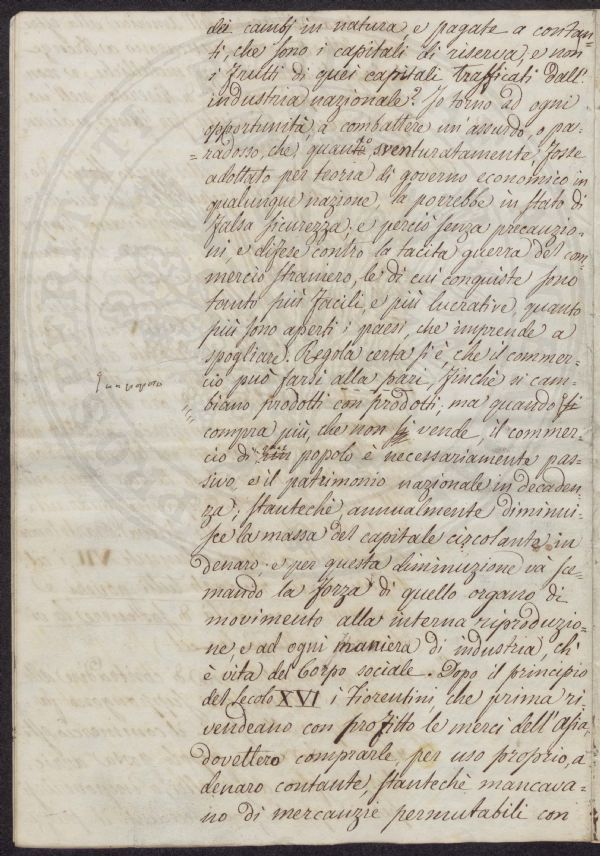 dei cambj in natura, e pagate a contan-
ti, che sono i capitali di riserva, e non
i frutti di quei capitale trafficati dall'
industria nazionale? Io torno ad ogni
opportunità, a combattere un'assurdo, o pa-
=radosso, che, quanto sventuratamente, fosse
adottato per teoria di governo economico in
qualunque nazione, la porrebbe in stato di
falsa sicurezza; e perciò senza precauzio-
ni, e difese contro la tacita guerra del com-
mercio straniero, le di cui conquiste sono
tanto più facili, e più lucrative, quanto
più sono aperti i paesi, che imprende a
spogliare. Regola certa si è, che il commer-
cio può farsi alla pari, finchè si cam-
biano prodotti con prodotti; ma quando si
compra più, che non si vende, il commer-
cio di popolo è necessariamente pas-
sivo, e il patrimonio nazionale in decaden-
za; stantechè annualmente diminui-
sce la massa del capitale circolante in
denaro. e per questa diminuzione và sce-
mando la forza di quello organo di
movimento alla interna riproduzio-
ne, e ad ogni maniera di industria, ch'
è vita del Corpo sociale. Dopo il principio
del secolo XVI i Fiorentini, che prima ri-
vendeano con profitto le merci dell'Asia,
dovettero comprarle, per uso proprio, a
denaro contante, stantechè mancava-
no di mercanzie permutabili con